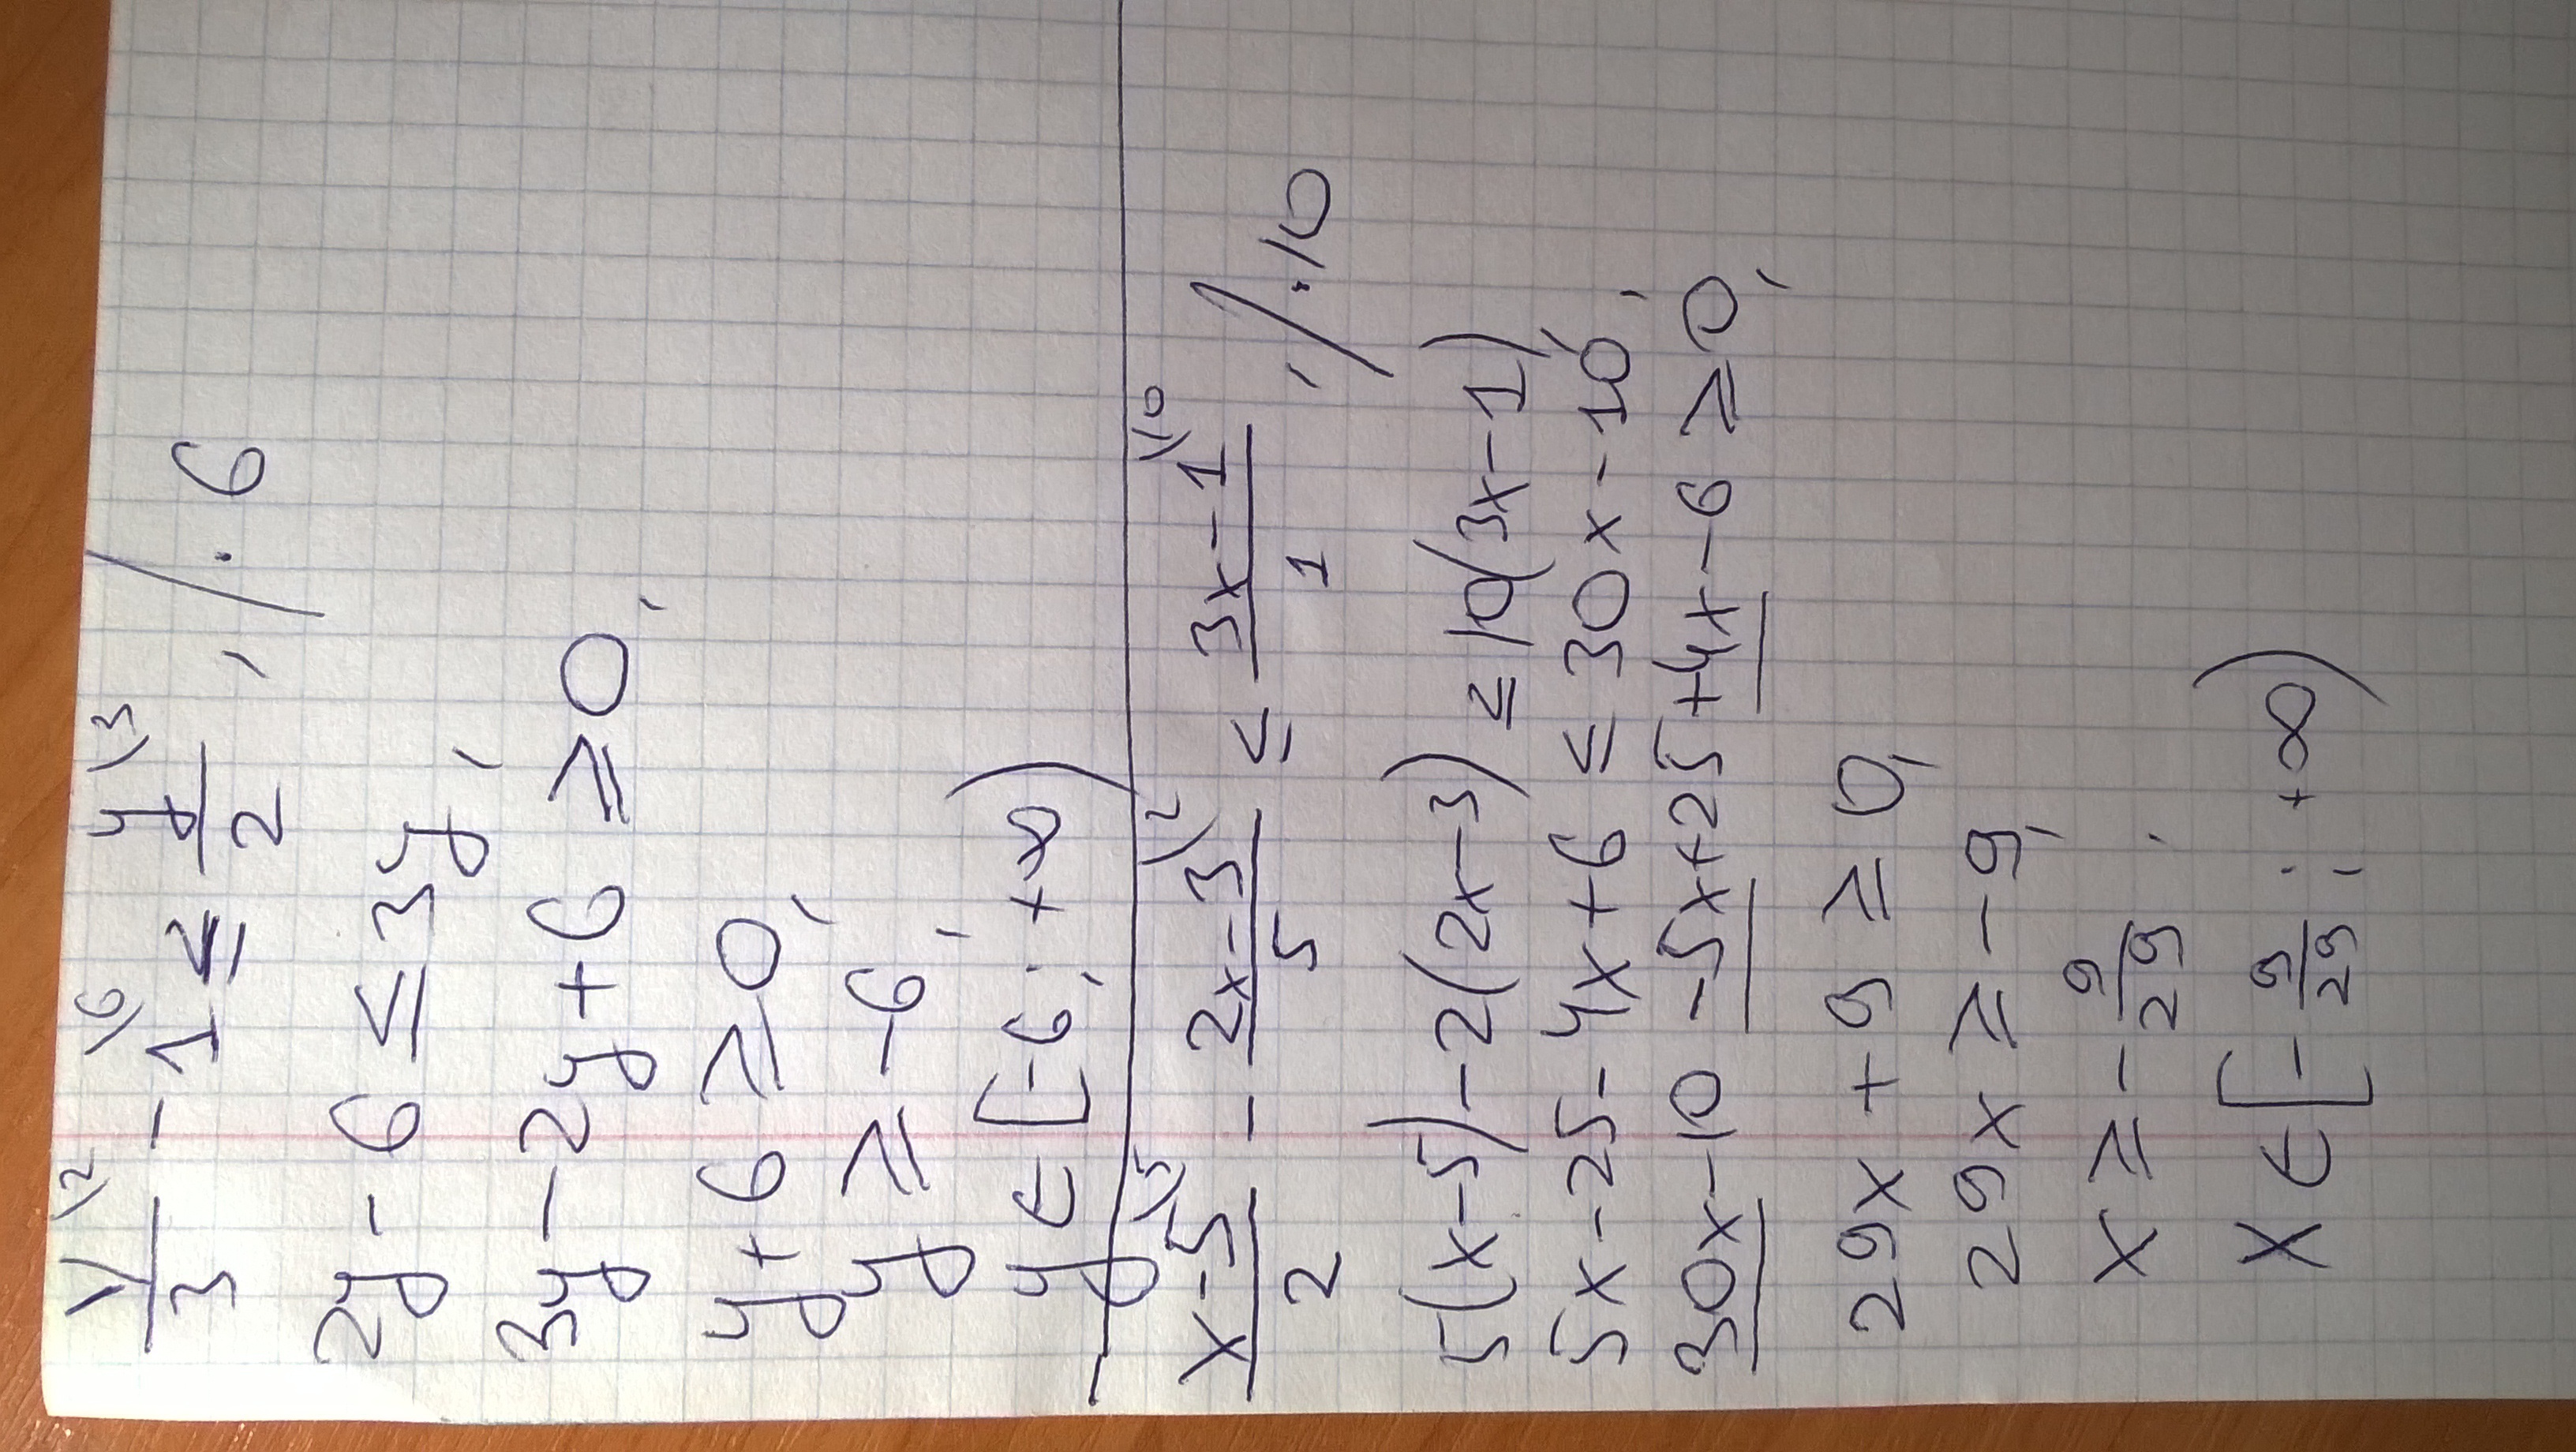 y\2/3 - 1\6 ≤ y\3/2 ; / · 6
2y - 6 ≤ 3y;
3y - 2y + 6 ≥ 0;
y + 6 ≥ 0;
y ≥ -6;
y ∈ [-6; +∞)
x-5\5/2 - 2x-3\2/5 ≤ 3x-1\10/1 ; / · 10
5(x-5) - 2(2x-3) ≤ 10(3x-1)
5x - 25 - 4x + 6 ≤ 30x - 10;
30x - 10 - 5x + 25 + 4x - 6 ≥ 0;
29x + 9 ≥ 0;
29x ≥ -9;
x ≥ - 9/29 ;
x ∈ [- 9/29 ; +∞)